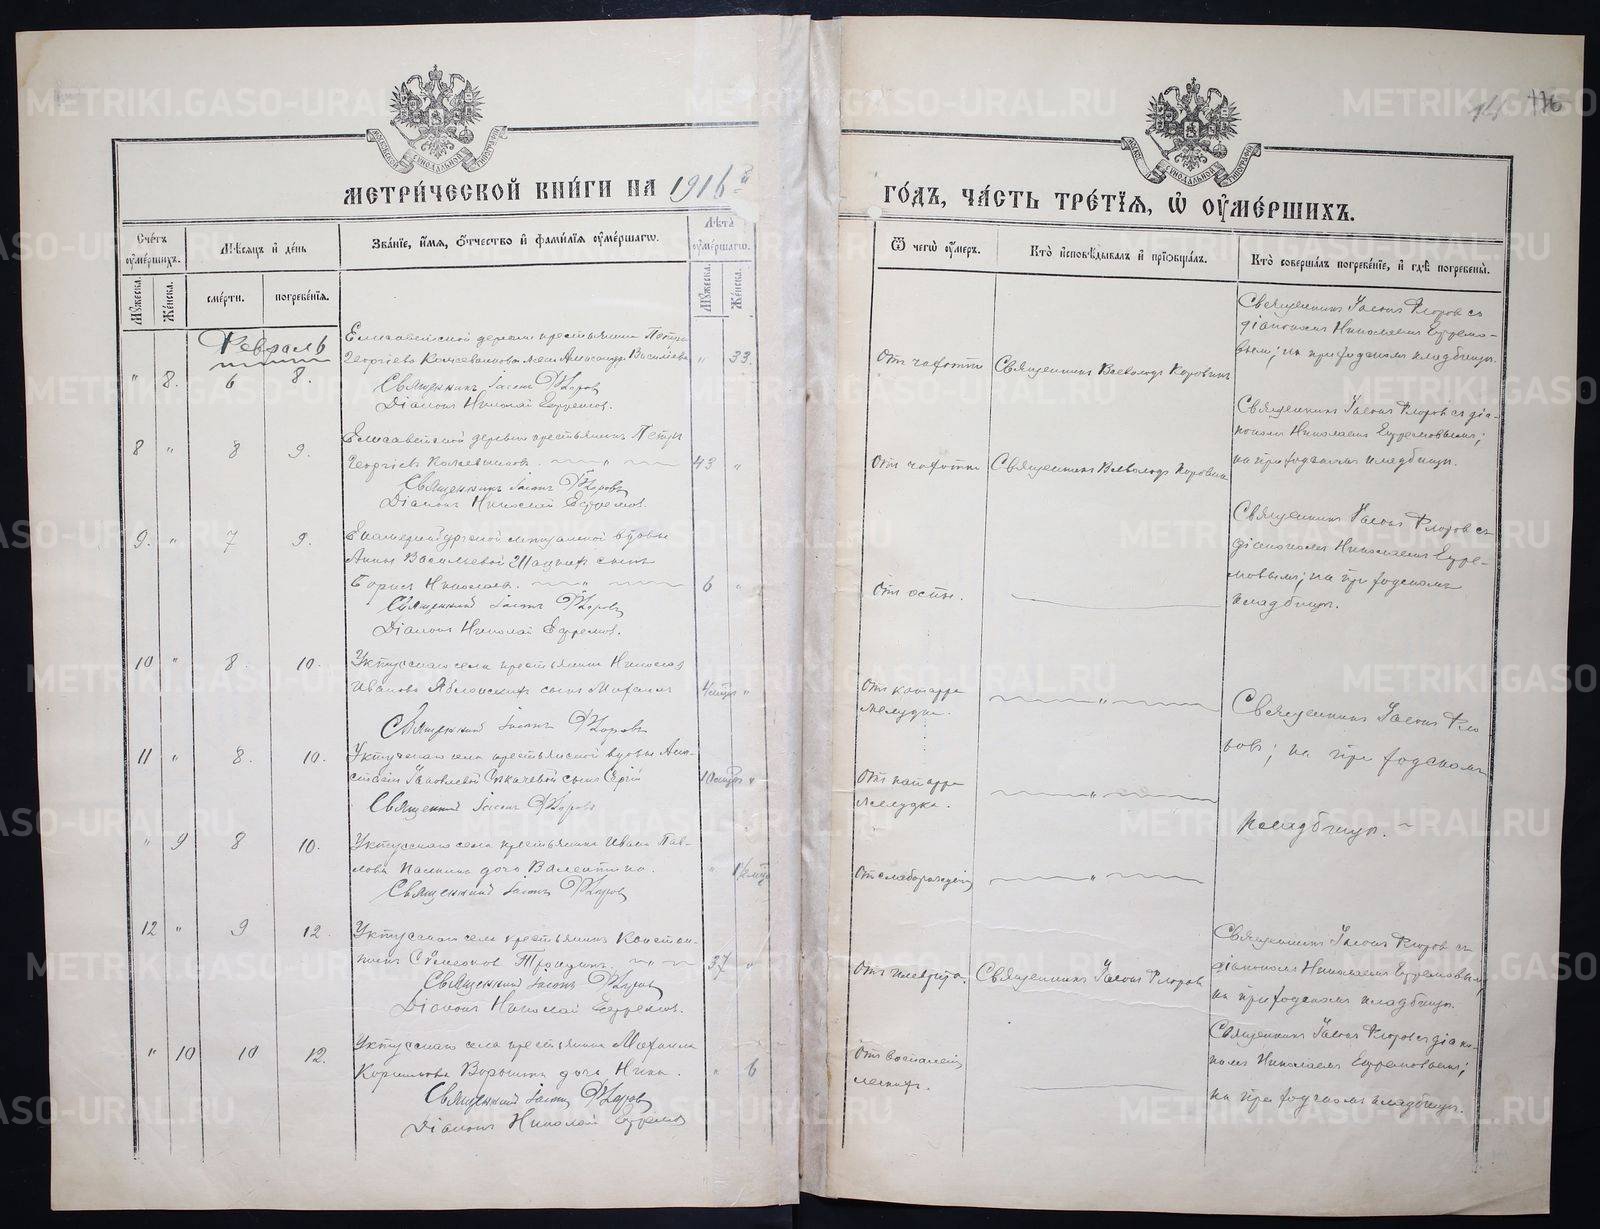 МЕТРИ́ЧЕСКОЙ КНИ́ГИ НА 1916-й
ГО́ДЪ, ЧА́СТЬ ТРЕ́ТЇѦ, Ѽ ОУМЕ́РШИХЪ.
176
Сче́тъ оуме́ршихъ.
Мꙋ́жеска.
Же́нска.
Мѣ́сяцъ и де́нь
сме́рти.
погребе́нїѧ.
Зва́нїе, и́мѧ, о́тчество и фами́лїѧ оуме́ршагѡ.
Лѣ́та оуме́ршагѡ.
Мꙋ́жеска.
Же́нска.
Ѿ чегѡ̀ оу́меръ.
Кто̀ и҆сповѣ́дывалъ и҆ прїѡбща́лъ.
Кто̀ соверша́лъ погребе́нїе, и҆ гдѣ̀ погребены̀.
Февраль
" 8. 6 8.
Елисаветской деревни крестьянина Петра
Георгіева Кожевникова жена Александра Васильева " 33
Священникъ Іасонъ Флоровъ
Діаконъ Николай Ефремов.
От чахотки
Священникъ Всеволодъ Коровинъ
Священникъ Іасонъ Флоровъ съ
діакономъ Николаемъ Ефремо-
вымъ; на приходскомъ кладбищѣ.
8 " 8 9.
Елисаветской деревни крестьянинъ Петръ
Георгіевъ Кожевниковъ. 43 "
Священникъ Іасонъ Флоровъ
Діаконъ Николай Ефремов.
От чахотки
Священникъ Всеволодъ Коровинъ
Священникъ Іасонъ Флоровъ съ діа-
кономъ Николаемъ Ефремовымъ;
на приходскомъ кладбищѣ.
9. " 7 9.
Екатеринбургской вдовы
Анны Васильевой сынъ
Борисъ Николаевъ. 6 "
Священникъ Іасонъ Флоровъ
Діаконъ Николай Ефремов.
От оспы.
Священникъ Іасонъ Флоровъ съ
діакономъ Николаемъ Ефре-
мовымъ; на приходскомъ
кладбищѣ.
10 " 8. 10.
Уктусскаго села крестьянина Николая
Иванова сынъ Михаилъ "
Священникъ Іасонъ Флоровъ
От катарра
желудка.
Священникъ Іасонъ Фло-
ровъ; на приходскомъ
кладбищѣ.
11 " 8. 10.
Уктусскаго села крестьянской вдовы Ана-
стасіи Яковлевой сынъ Сергій "
Священникъ Іасонъ Флоровъ
От катарра
желудка.
" 9 8 10.
Уктусскаго села крестьянина Ивана Пав-
лова дочь Валентина. "
Священникъ Іасонъ Флоровъ
От слаборожденія
12 " 9 12.
Уктусскаго села крестьянинъ Констан-
тинъ Сѵмеоновъ 37 "
Священникъ Іасонъ Флоровъ
Діаконъ Николай Ефремов.
От плеврита.
Священникъ Іасонъ Флоровъ
Священникъ Іасонъ Флоровъ съ
діакономъ Николаемъ Ефремовымъ;
на приходскомъ кладбищѣ.
" 10 10 12.
Уктусскаго села крестьянина Михаила
Корнилова дочь Нина. " 6
Священникъ Іасонъ Флоровъ
Діаконъ Николай Ефремов
От воспаленія
легкихъ.
Священникъ Іасонъ Флоровъ съ діако-
номъ Николаемъ Ефремовымъ;
на приходскомъ кладбищѣ.
METRIKI.GASO-URAL.RU